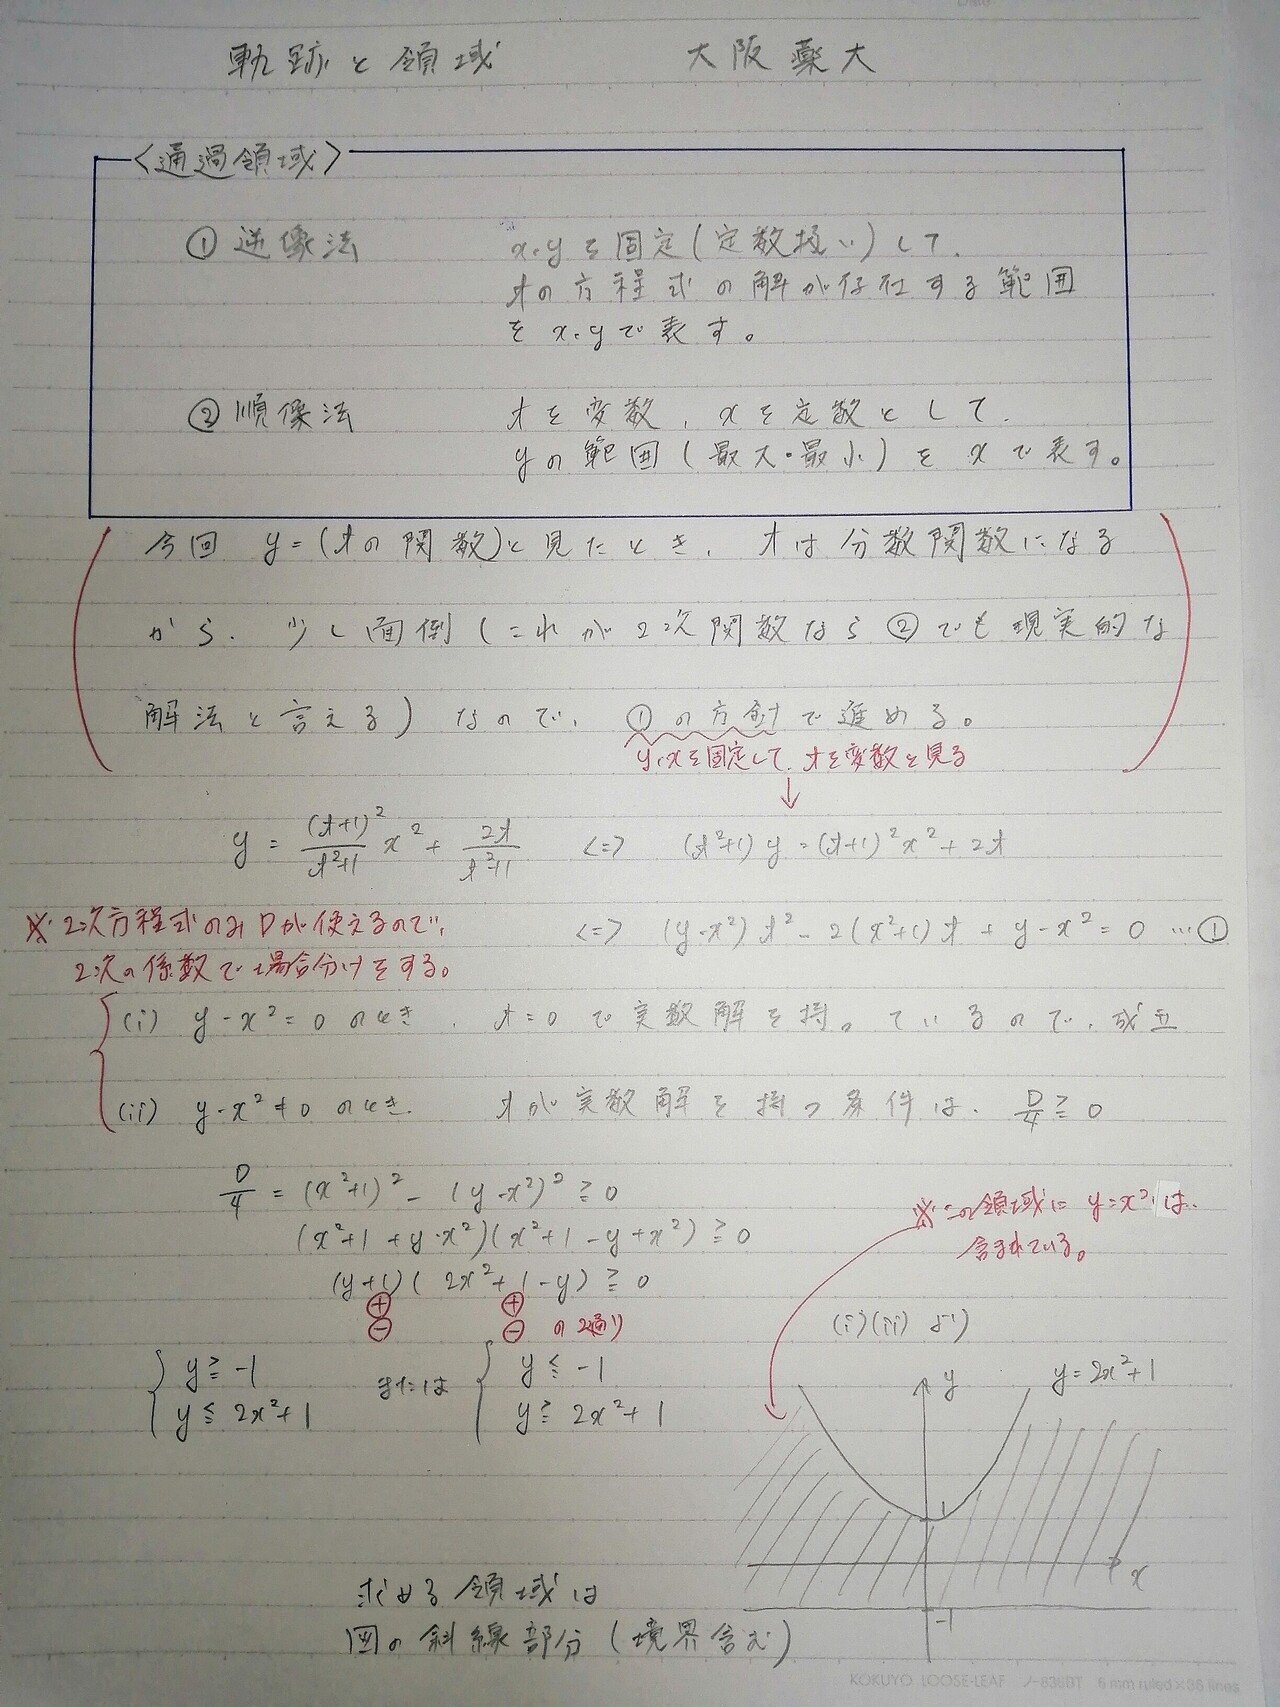 軌跡と領域 大阪薬大
<通過領域>
① 逆像法 x,yを固定(定数扱い)して、
tの方程式の解が存在する範囲
をx,yで表す。
② 順像法 tを変数、xを定数として、
yの範囲(最大・最小)をxで表す。
今回 y=(tの関数)と見たとき、tは分数関数になる
から、少し面倒(これが2次関数なら②でも現実的な
解法と言える)なので、①の方針で進める。
y,xを固定して、tを変数と見る
↓
y = (t+1)²/(t²+1) x² + 2t/(t²+1) <=> (t²+1)y = (t+1)²x² + 2t
※2次方程式のみDが使えるので、
2次の係数で場合分けをする。
<=> (y-x²)t² - 2(x²+1)t + y-x² = 0 …①
(i) y-x²=0 のとき、t=0で実数解を持っているので、成立
(ii) y-x²≠0 のとき、tが実数解を持つ条件は、D/4≧0
D/4 = (x²+1)² - (y-x²)² ≧ 0
(x²+1+y-x²)(x²+1-y+x²) ≧ 0
(y+1)(2x²+1-y) ≧ 0
⊕ ⊕
⊖ ⊖ の2通り
{ y≧-1 または { y≦-1
y≦2x²+1 y≧2x²+1
※この領域に y=x²は、
含まれている。
(i)(ii)より
y y=2x²+1
1
x
-1
求める領域は
図の斜線部分(境界含む)
KOKUYO LOOSE-LEAF ノ-836BT 6 mm ruled×36 lines